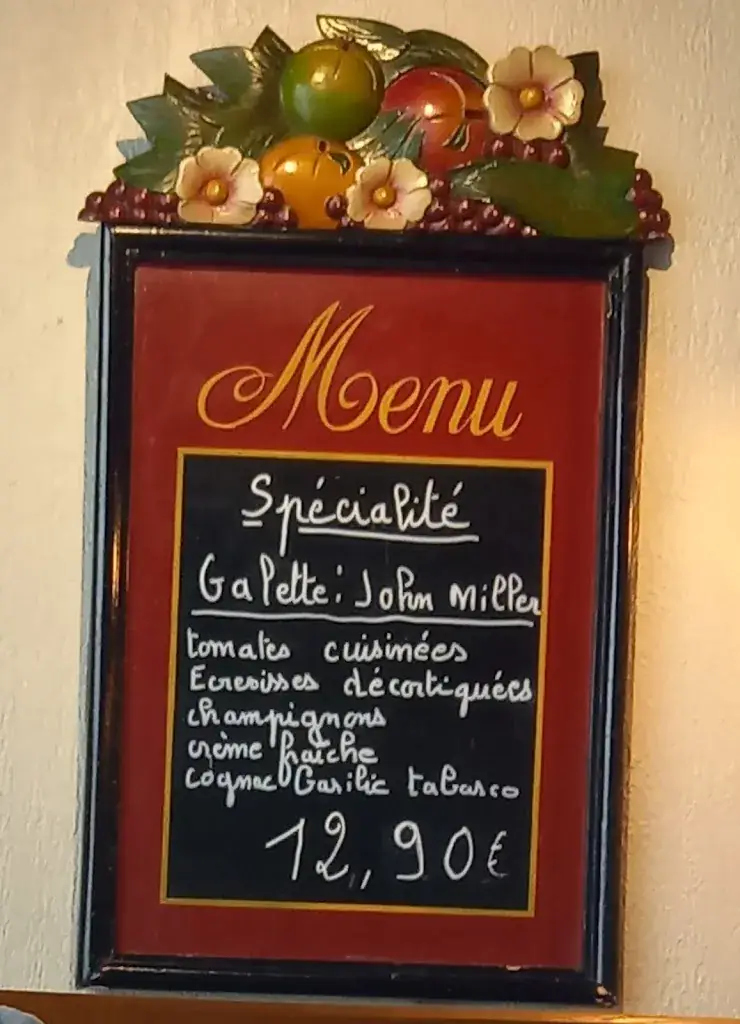 Menu
Spécialité
Galette : John Miller
tomates cuisinées
Ecrevisses décortiquées
champignons
crème fraîche
cognac Basilic tabasco
12,90€